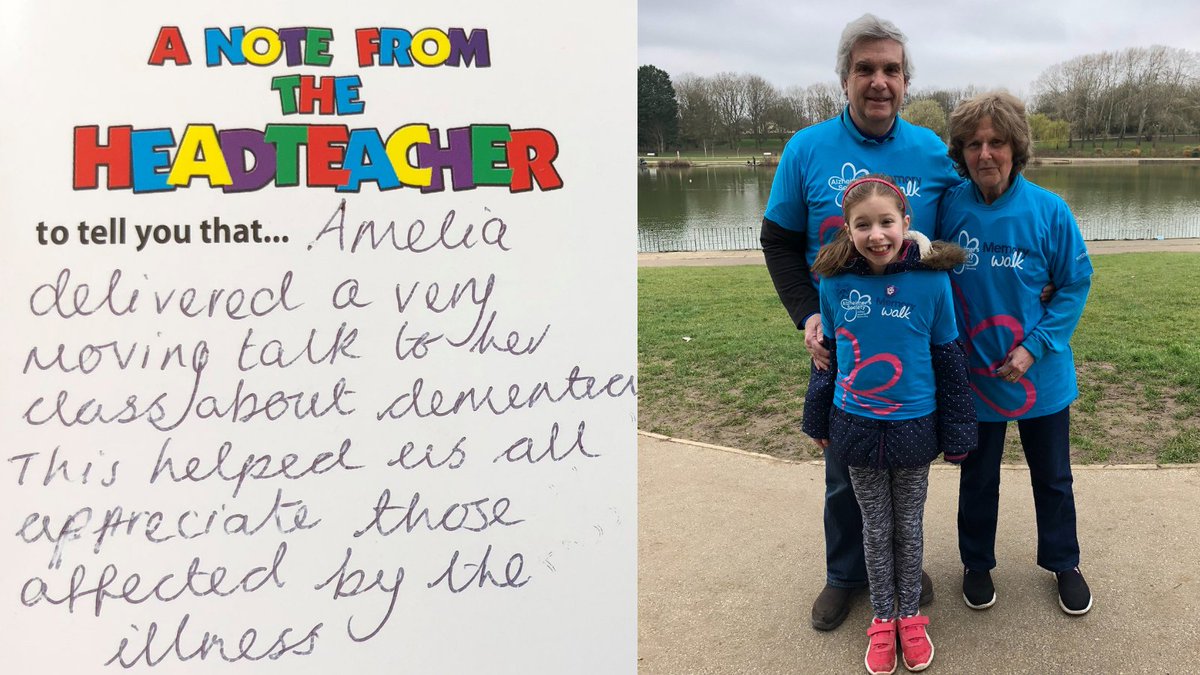 A NOTE FROM
THE
HEADTEACHER
to tell you that... Amelia
delivered a very
moving talk to her
class about dementia
This helped us all
appreciate those
affected by the
illness
Alzheimer's
Society
Memory
walk
Alzheimer's
Society
Memory
walk
Alzheimer's
Society
Memory
walk